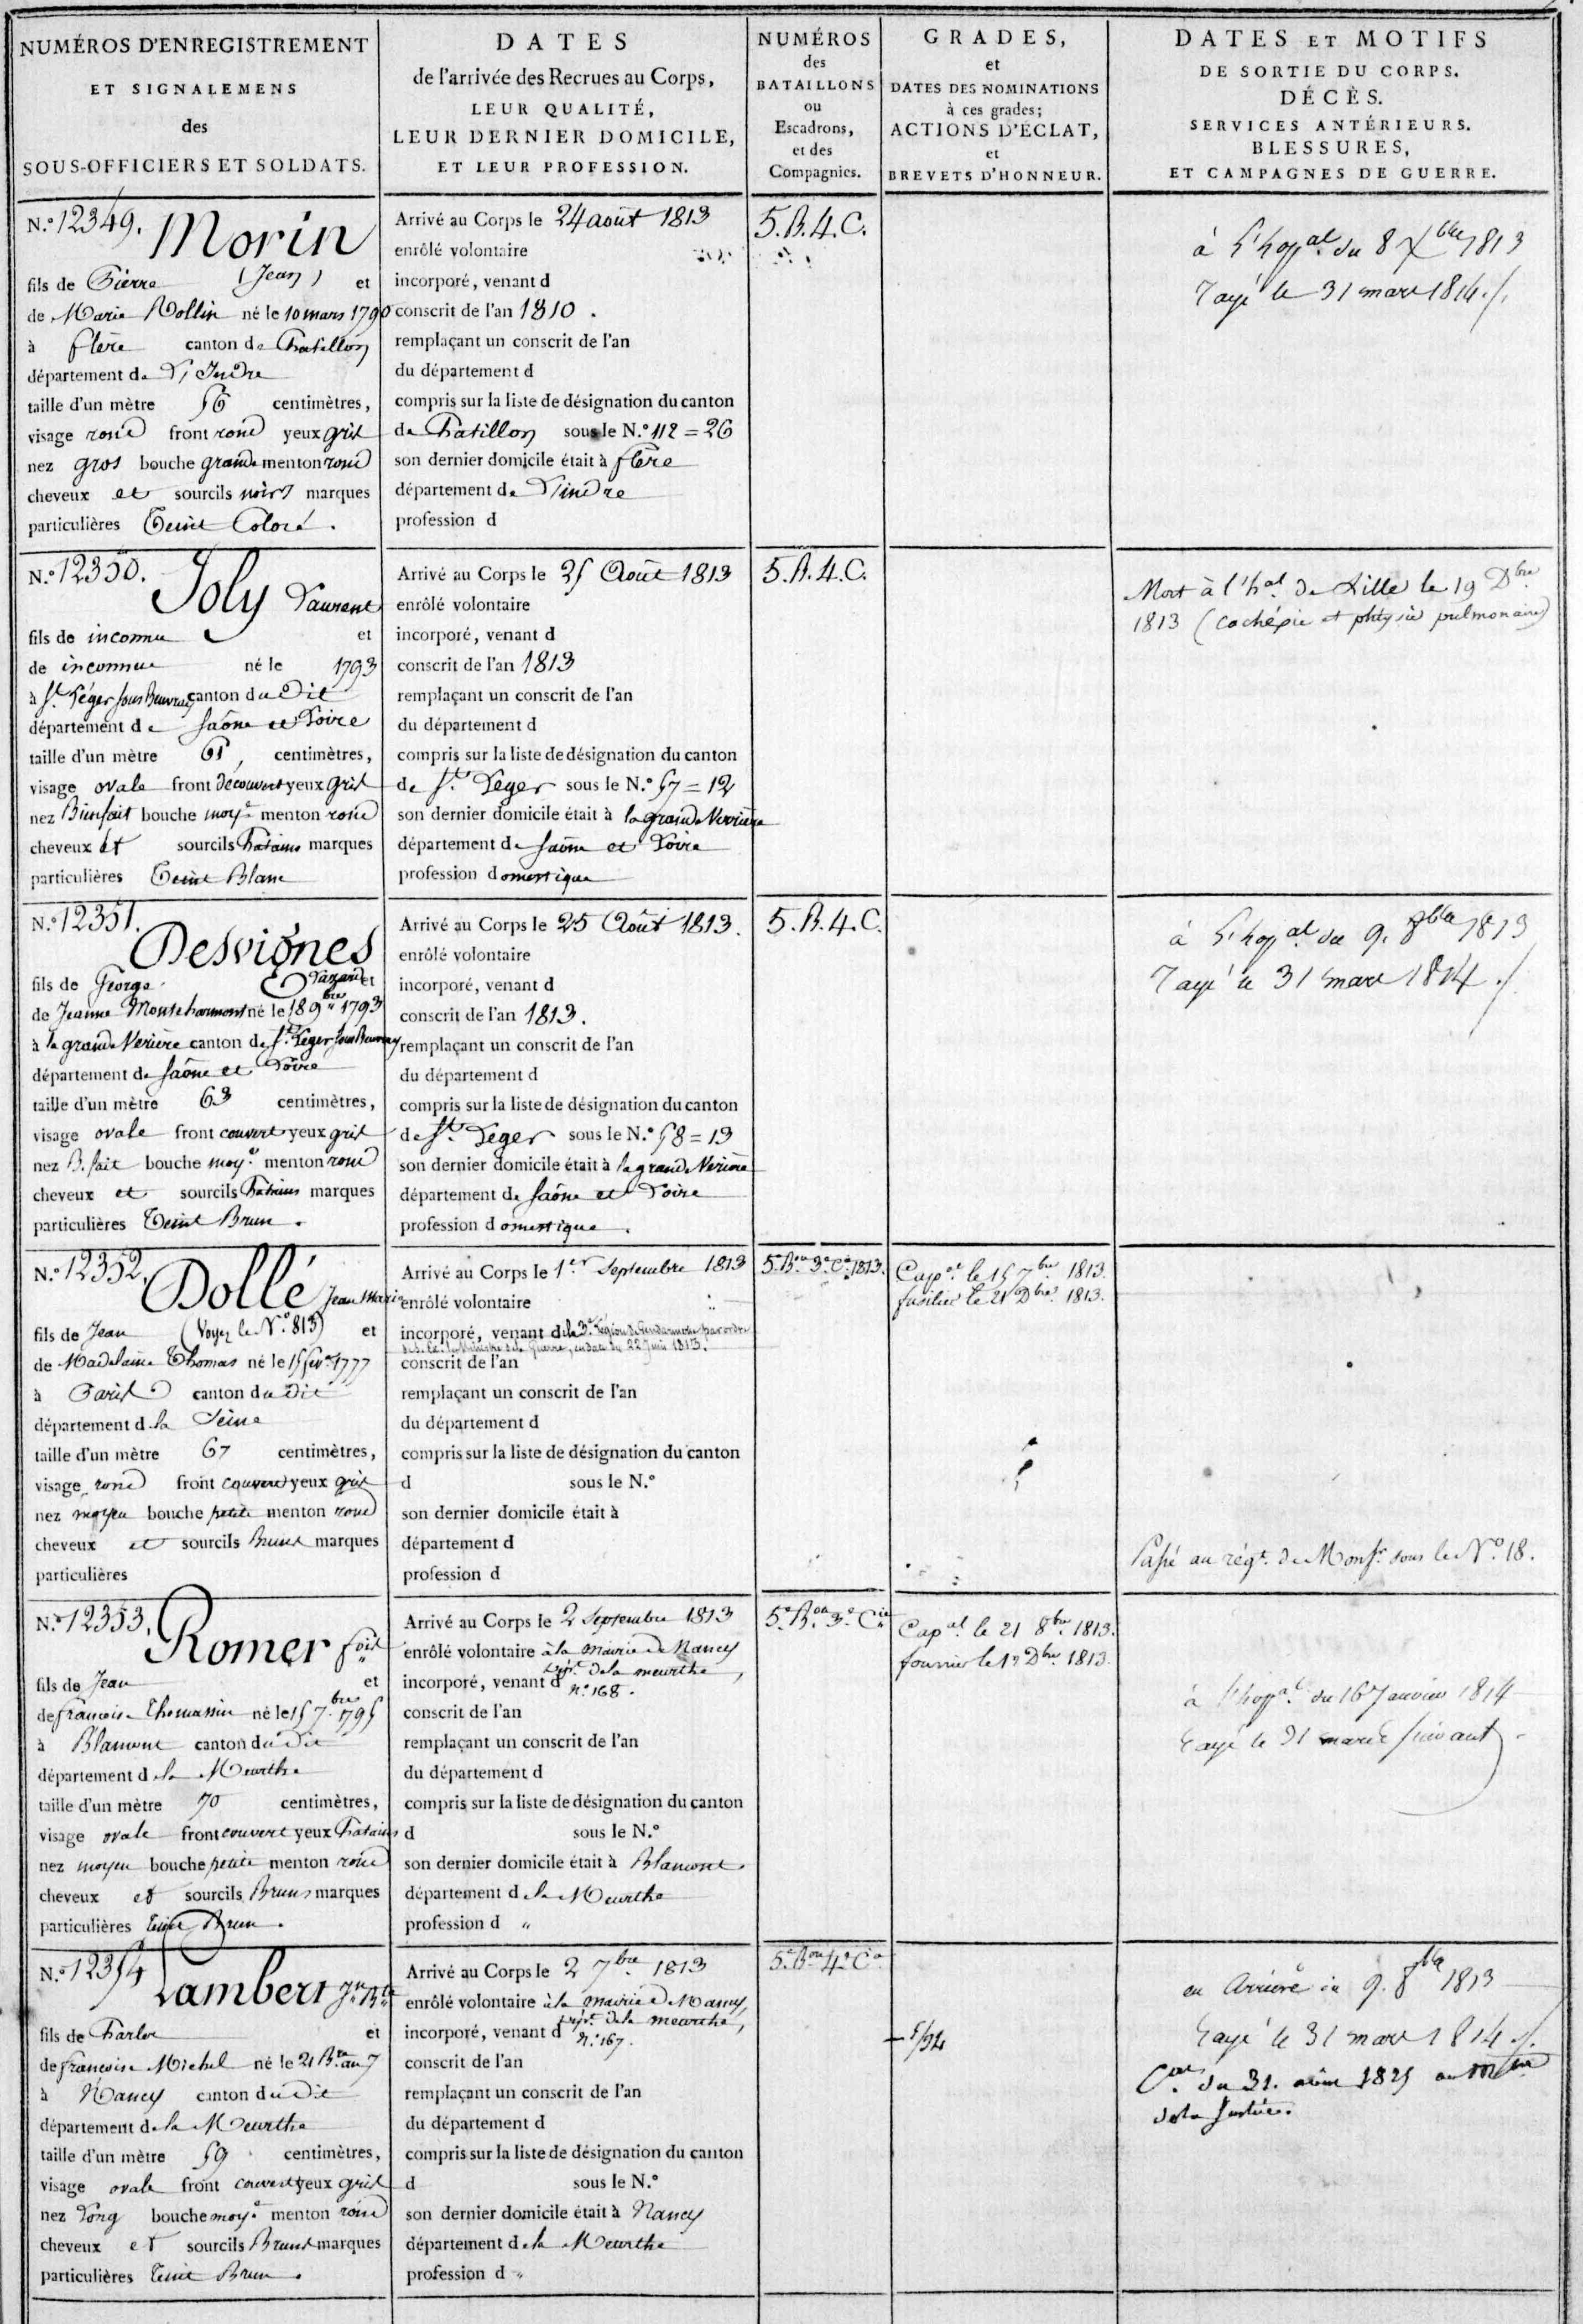 NUMÉROS D'ENREGISTREMENT
ET SIGNALEMENS
des
SOUS-OFFICIERS ET SOLDATS.
DATES
de l'arrivée des Recrues au Corps,
LEUR QUALITÉ,
LEUR DERNIER DOMICILE,
ET LEUR PROFESSION.
NUMÉROS
des
BATAILLONS
ou
Escadrons,
et des
Compagnies.
GRADES,
et
DATES DES NOMINATIONS
à ces grades;
ACTIONS D'ÉCLAT,
et
BREVETS D'HONNEUR.
DATES ET MOTIFS
DE SORTIE DU CORPS.
DÉCÈS.
SERVICES ANTÉRIEURS.
BLESSURES,
ET CAMPAGNES DE GUERRE.
N.º 12349. Morin
(Jean)
fils de Pierre et
de Marie Rollin né le 10 mars 1790
à flère canton de Chatillon
département de L'Indre
taille d'un mètre 56 centimètres,
visage rond front rond yeux gris
nez gros bouche grande menton rond
cheveux et sourcils noirs marques
particulières Teint Coloré.
Arrivé au Corps le 24 août 1813
enrôlé volontaire
incorporé, venant d
conscrit de l'an 1810.
remplaçant un conscrit de l'an
du département d
compris sur la liste de désignation du canton
de Chatillon sous le N.º 112 = 26
son dernier domicile était à flère
département de L'indre
profession d
5.B.4.C.
à l'hop.al du 8 Xbre 1813
Rayé le 31 mars 1814./.
N.º 12350. Joly Laurent
fils de inconnu et
de inconnue né le 1793
à St. Léger sous Beuvray canton du Dit
département de Saône et Loire
taille d'un mètre 61, centimètres,
visage ovale front découvert yeux gris
nez Bienfait bouche moy.e menton rond
cheveux et sourcils Chatains marques
particulières Teint Blanc
Arrivé au Corps le 25 Août 1813
enrôlé volontaire
incorporé, venant d
conscrit de l'an 1813
remplaçant un conscrit de l'an
du département d
compris sur la liste de désignation du canton
de St. Leger sous le N.º 57 = 12
son dernier domicile était à la grande Verrière
département de Saône et Loire
profession domestique
5.B.4.C.
Mort à l'h.al de Lille le 19 Dbre
1813 (cachéxie et phtysie pulmonaire)
N.º 12351. Desvignes
Lazare
fils de George et
de Jeanne Montcharmont né le 18 9bre 1793
à la grande Verière canton de St. Leger sous Beuvray
département de Saône et Loire
taille d'un mètre 63 centimètres,
visage ovale front couvert yeux gris
nez B. fait bouche moy.e menton rond
cheveux et sourcils Chatains marques
particulières Teint Brun.
Arrivé au Corps le 25 Août 1813.
enrôlé volontaire
incorporé, venant d
conscrit de l'an 1813.
remplaçant un conscrit de l'an
du département d
compris sur la liste de désignation du canton
de St. Leger sous le N.º 58 = 13
son dernier domicile était à la grande Verière
département de Saône et Loire
profession domestique.
5.B.4.C.
à l'hop.al du 9. 8bre 1813
Rayé le 31 mars 1814./.
N.º 12352. Dollé Jean Marie
(Voyez le N.º 813)
fils de Jean et
de Madelaine Thomas né le 15 fév.r 1777
à Paris canton du Dit
département de la Seine
taille d'un mètre 67 centimètres,
visage rond front couvert yeux gris
nez moyen bouche petite menton rond
cheveux et sourcils Bruns marques
particulières
Arrivé au Corps le 1er Septembre 1813
enrôlé volontaire
incorporé, venant de la 3e Légion de Gendarmerie par ordre
de S. Ex. le Ministre de la Guerre, en date du 22 Juin 1813.
conscrit de l'an
remplaçant un conscrit de l'an
du département d
compris sur la liste de désignation du canton
d sous le N.º
son dernier domicile était à
département d
profession d
5e Bon 3e Cie 1813.
Cap.al le 15 7bre 1813.
fusilier le 21 Dbre 1813.
Passé au rég.t de Mons.r sous le N.º 18.
N.º 12353. Romer f.ois
fils de Jean et
de françoise Thomassin né le 15 7bre 1795
à Blamont canton du Dit
département de la Meurthe
taille d'un mètre 70 centimètres,
visage ovale front couvert yeux Chatains
nez moyen bouche petite menton rond
cheveux et sourcils Bruns marques
particulières Teint Brun.
Arrivé au Corps le 2 Septembre 1813
enrôlé volontaire à la mairie de Nancy
dép.t de la meurthe,
incorporé, venant d n.º 168.
conscrit de l'an
remplaçant un conscrit de l'an
du département d
compris sur la liste de désignation du canton
d sous le N.º
son dernier domicile était à Blamont
département de la Meurthe
profession d "
5e Bon 3e Cie
Cap.al le 21 8bre 1813.
fourrier le 1er Dbre 1813.
à l'hop.al du 16 Janvier 1814
Rayé le 31 mars suivant.
N.º 12354 Lambert Jn Bte
fils de Charles et
de françoise Michel né le 21 B.re an 7
à Nancy canton du Dit
département de la Meurthe
taille d'un mètre 59 centimètres,
visage ovale front couvert yeux gris
nez Long bouche moy.e menton rond
cheveux et sourcils Bruns marques
particulières Teint Brun.
Arrivé au Corps le 2 7bre 1813
enrôlé volontaire à la mairie de Nancy,
dép.t de la meurthe,
incorporé, venant d N.º 167.
conscrit de l'an
remplaçant un conscrit de l'an
du département d
compris sur la liste de désignation du canton
d sous le N.º
son dernier domicile était à Nancy
département de la Meurthe
profession d "
5e Bon 4e Cie
en Arrière du 9. 8bre 1813
Rayé le 31 mars 1814./.
du 31. août 1825 au Mtre
de la Justice.